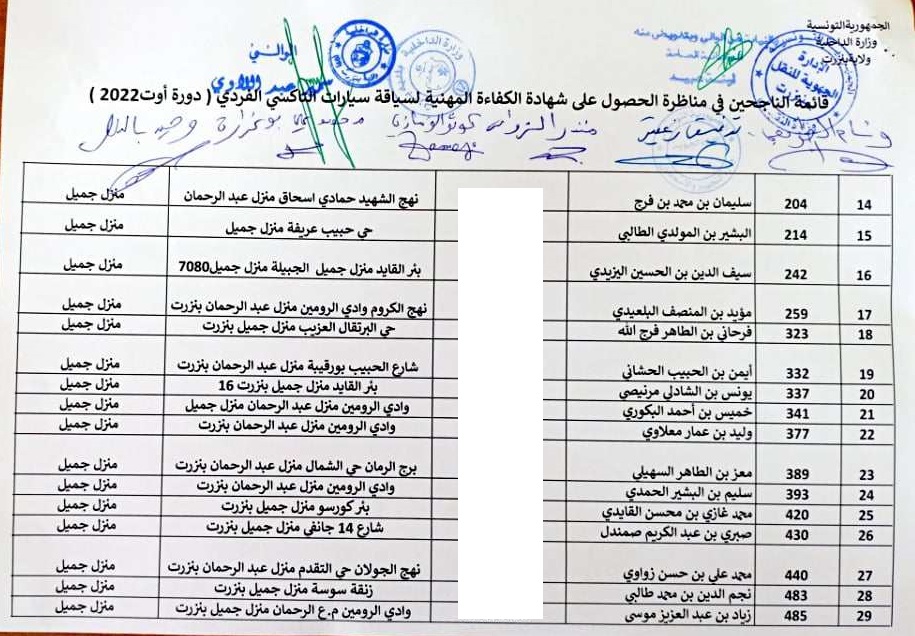 الجمهورية التونسية
وزارة الداخلية
ولاية بنزرت
الوالي
سمير عبد اللاوي
الإدارة
الجهوية للنقل
قائمة الناجحين في مناظرة الحصول على شهادة الكفاءة المهنية لسياقة سيارات التاكسي الفردي ( دورة أوت2022 )
14 204 سليمان بن محمد بن فرج نهج الشهيد حمادي اسحاق منزل عبد الرحمان منزل جميل
15 214 البشير بن المولدي الطالبي حي حبيب عريفة منزل جميل منزل جميل
16 242 سيف الدين بن الحسين اليزيدي بئر القايد منزل جميل الجبيلة منزل جميل7080 منزل جميل
17 259 مؤيد بن المنصف البلعيدي نهج الكروم وادي الرومين منزل عبد الرحمان بنزرت منزل جميل
18 323 فرحاني بن الطاهر فرج الله حي البرتقال العزيب منزل جميل بنزرت منزل جميل
19 332 أيمن بن الحبيب الحشاني شارع الحبيب بورقيبة منزل عبد الرحمان بنزرت منزل جميل
20 337 يونس بن الشادلي مرنيصي بئر القايد منزل جميل بنزرت 16 منزل جميل
21 341 خميس بن أحمد البكوري وادي الرومين منزل عبد الرحمان منزل جميل منزل جميل
22 377 وليد بن عمار معلاوي وادي الرومين منزل عبد الرحمان بنزرت منزل جميل
23 389 معز بن الطاهر السهيلي برج الرمان حي الشمال منزل عبد الرحمان بنزرت منزل جميل
24 393 سليم بن البشير الحمدي وادي الرومين منزل عبد الرحمان بنزرت منزل جميل
25 420 محمد غازي بن محسن القايدي بئر كورسو منزل جميل بنزرت منزل جميل
26 430 صبري بن عبد الكريم صمندل شارع 14 جانفي منزل جميل بنزرت منزل جميل
27 440 محمد علي بن حسن زواوي نهج الجولان حي التقدم منزل عبد الرحمان بنزرت منزل جميل
28 483 نجم الدين بن محمد طالبي زنقة سوسة منزل جميل بنزرت منزل جميل
29 485 زياد بن عبد العزيز موسى وادي الرومين م.ع الرحمان منزل جميل بنزرت منزل جميل